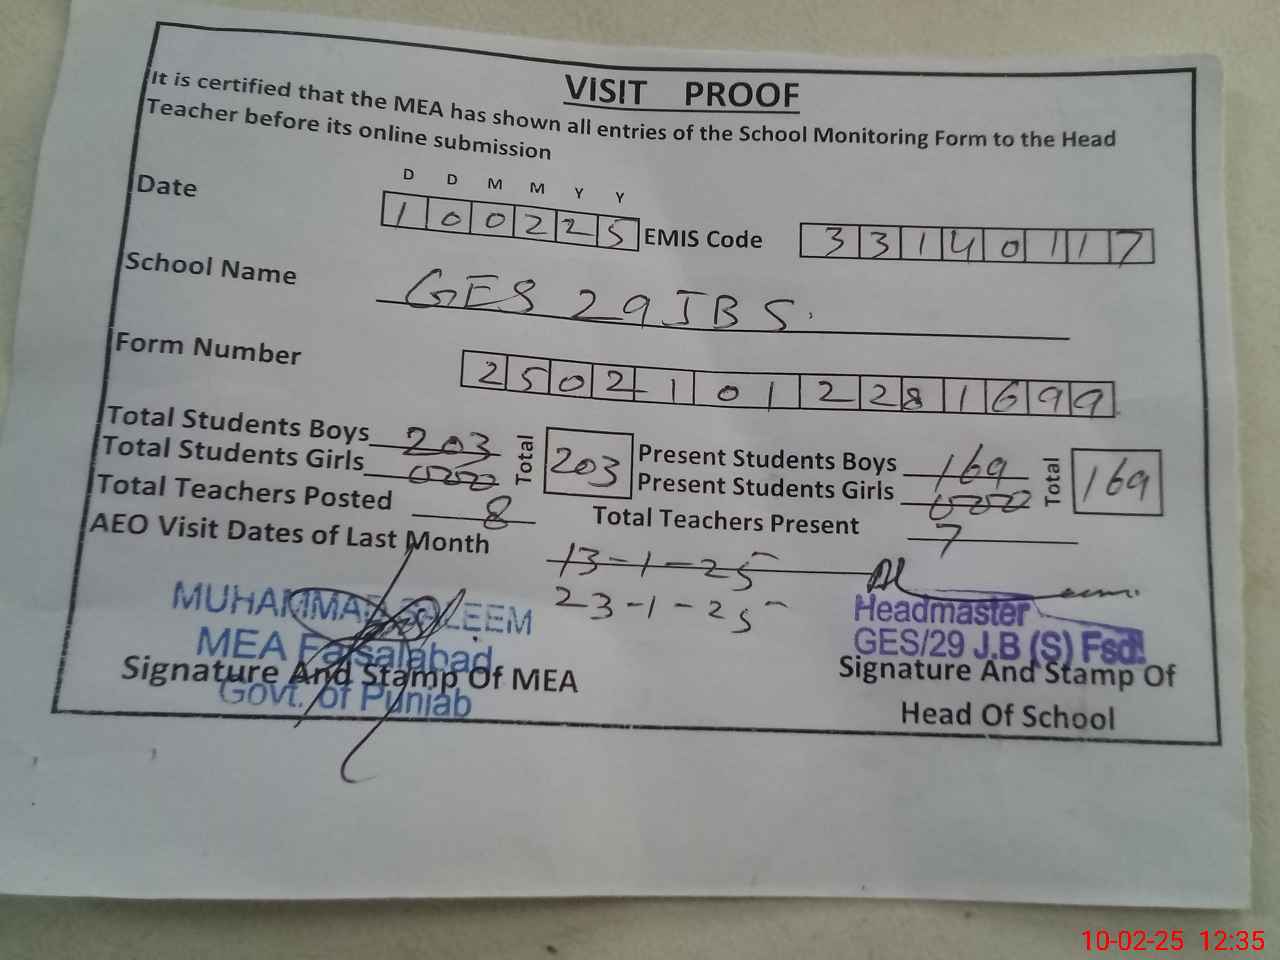 VISIT PROOF
It is certified that the MEA has shown all entries of the School Monitoring Form to the Head
Teacher before its online submission
D D M M Y Y
Date 1 0 0 2 2 5 EMIS Code 3 3 1 4 0 1 1 7
School Name GES 29 JB S.
Form Number 2 5 0 2 1 0 1 2 2 8 1 6 9 9
Total Students Boys 203 Total 203 Present Students Boys 169 Total 169
Total Students Girls 000 Present Students Girls 000
Total Teachers Posted 8 Total Teachers Present 7
AEO Visit Dates of Last Month 13-1-25
23-1-25
MUHAMMAD SALEEM
MEA Faisalabad
Govt. of Punjab
Signature And Stamp Of MEA
Headmaster
GES/29 J.B (S) Fsd.
Signature And Stamp Of
Head Of School
10-02-25 12:35